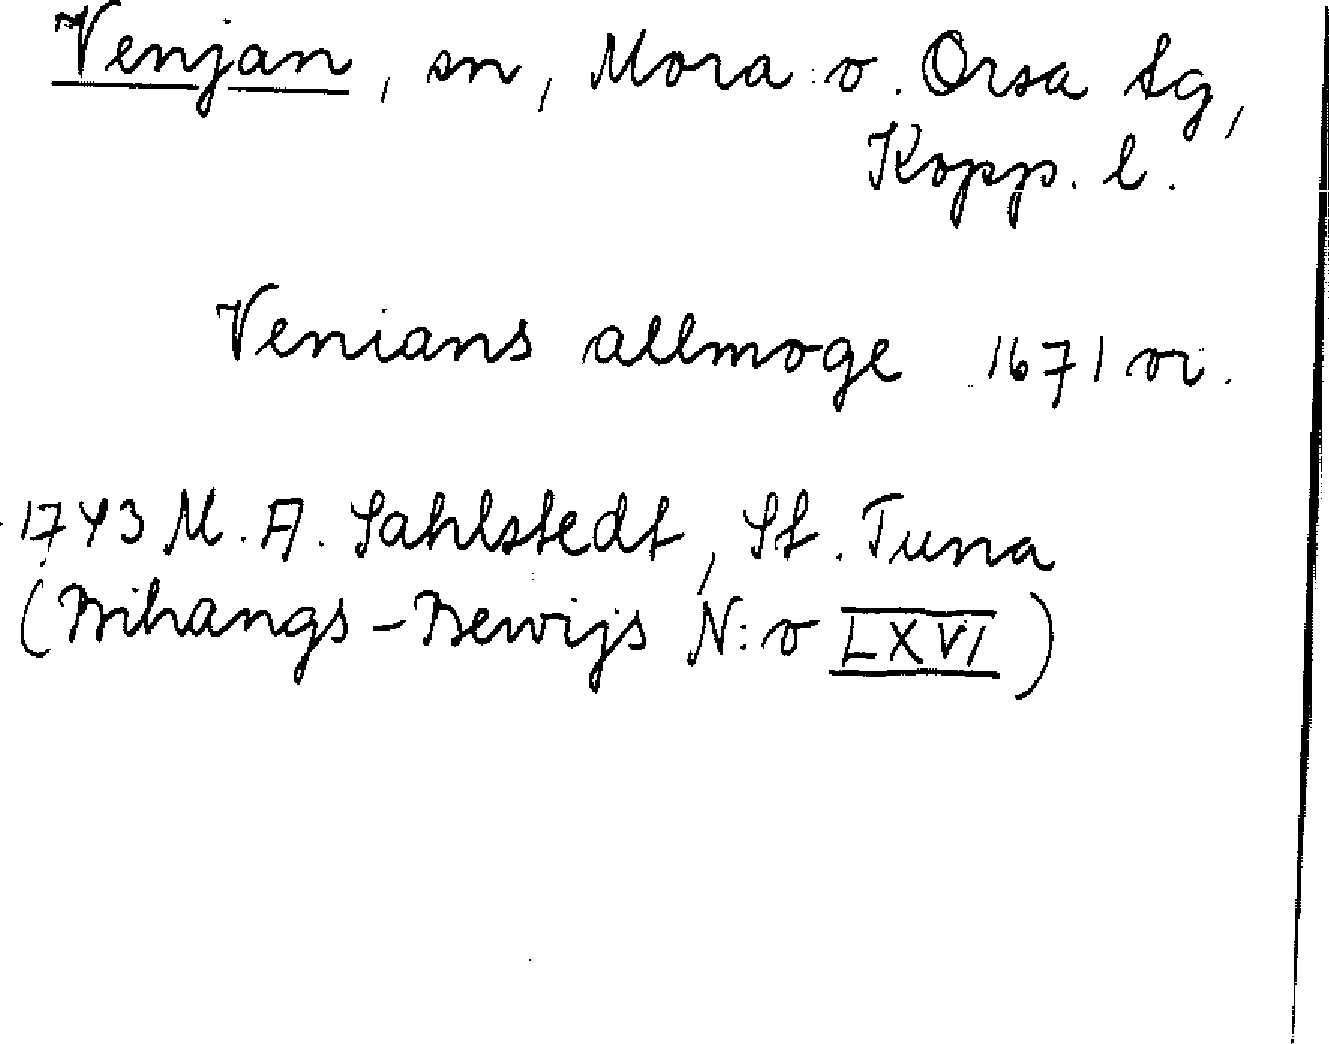 Venjan, sn, Mora o. Orsa tg,
Kopp. l.
Venians allmoge 1671 or.
1743 M. A. Sahlstedt, St. Tuna
(Bihangs-Bewijs N:o LXVI)